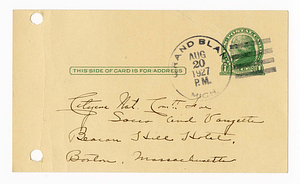 GRAND BLANC
AUG
20
1927
P.M.
MICH.
THIS SIDE OF CARD IS FOR ADDRESS
Citizens Nat. Com'tt for
Sacco and Vanzetti
Beacon Hill Hotel,
Boston, Massachusetts